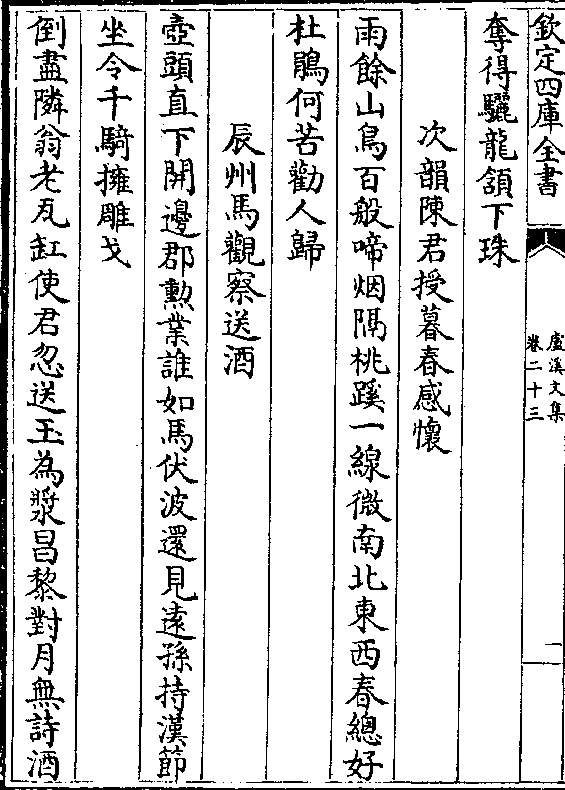 欽定四庫全書
盧溪文集
卷二十三
二
奪得驪龍頷下珠
次韻陳君授暮春感懷
雨餘山鳥百般啼烟隔桃蹊一線微南北東西春總好
杜鵑何苦勸人歸
辰州馬觀察送酒
壺頭直下開邊郡勲業誰如馬伏波還見逺孫持漢節
坐令千騎擁雕戈
倒盡隣翁老瓦缸使君忽送玉為漿昌黎對月無詩酒